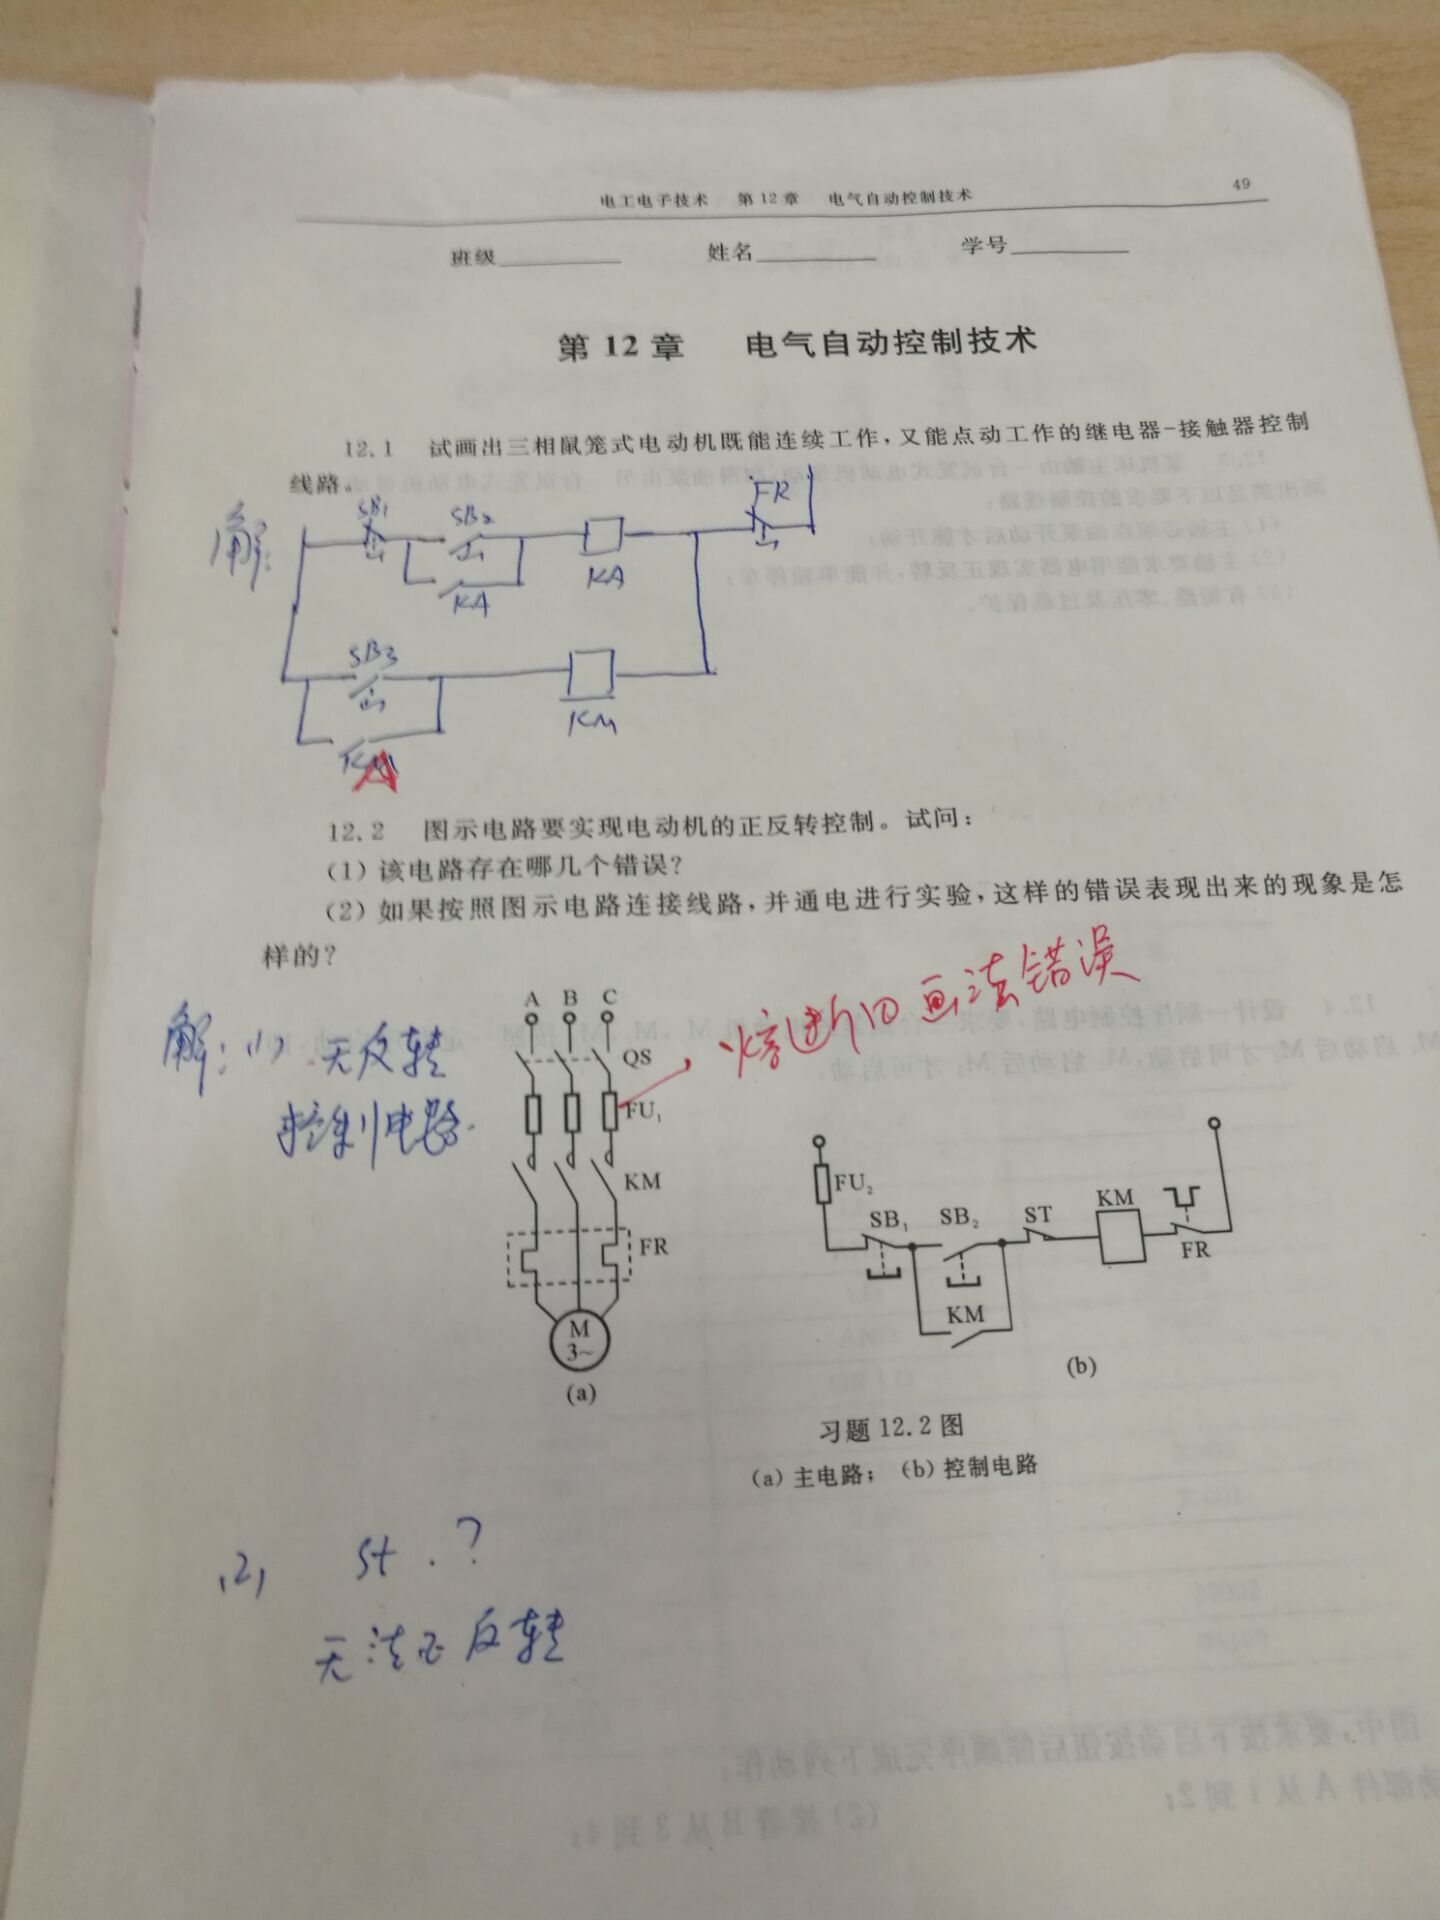 电工电子技术 第12章 电气自动控制技术 49
班级 姓名 学号
第12章 电气自动控制技术
12.1 试画出三相鼠笼式电动机既能连续工作,又能点动工作的继电器-接触器控制
线路。
解:
SB1 SB2 FR
KA KA
SB3
KM
A
12.2 图示电路要实现电动机的正反转控制。试问:
(1) 该电路存在哪几个错误?
(2) 如果按照图示电路连接线路,并通电进行实验,这样的错误表现出来的现象是怎
样的?
熔断的画法错误
解:(1) 无反转
控制电路.
A B C
QS
FU1
KM
FR
M
3~
(a)
FU2
SB1 SB2 ST KM
FR
KM
(b)
习题 12.2 图
(a) 主电路; (b) 控制电路
(2) St .?
无法正反转